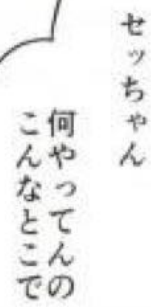 セッちゃん
何やってんの
こんなとこで